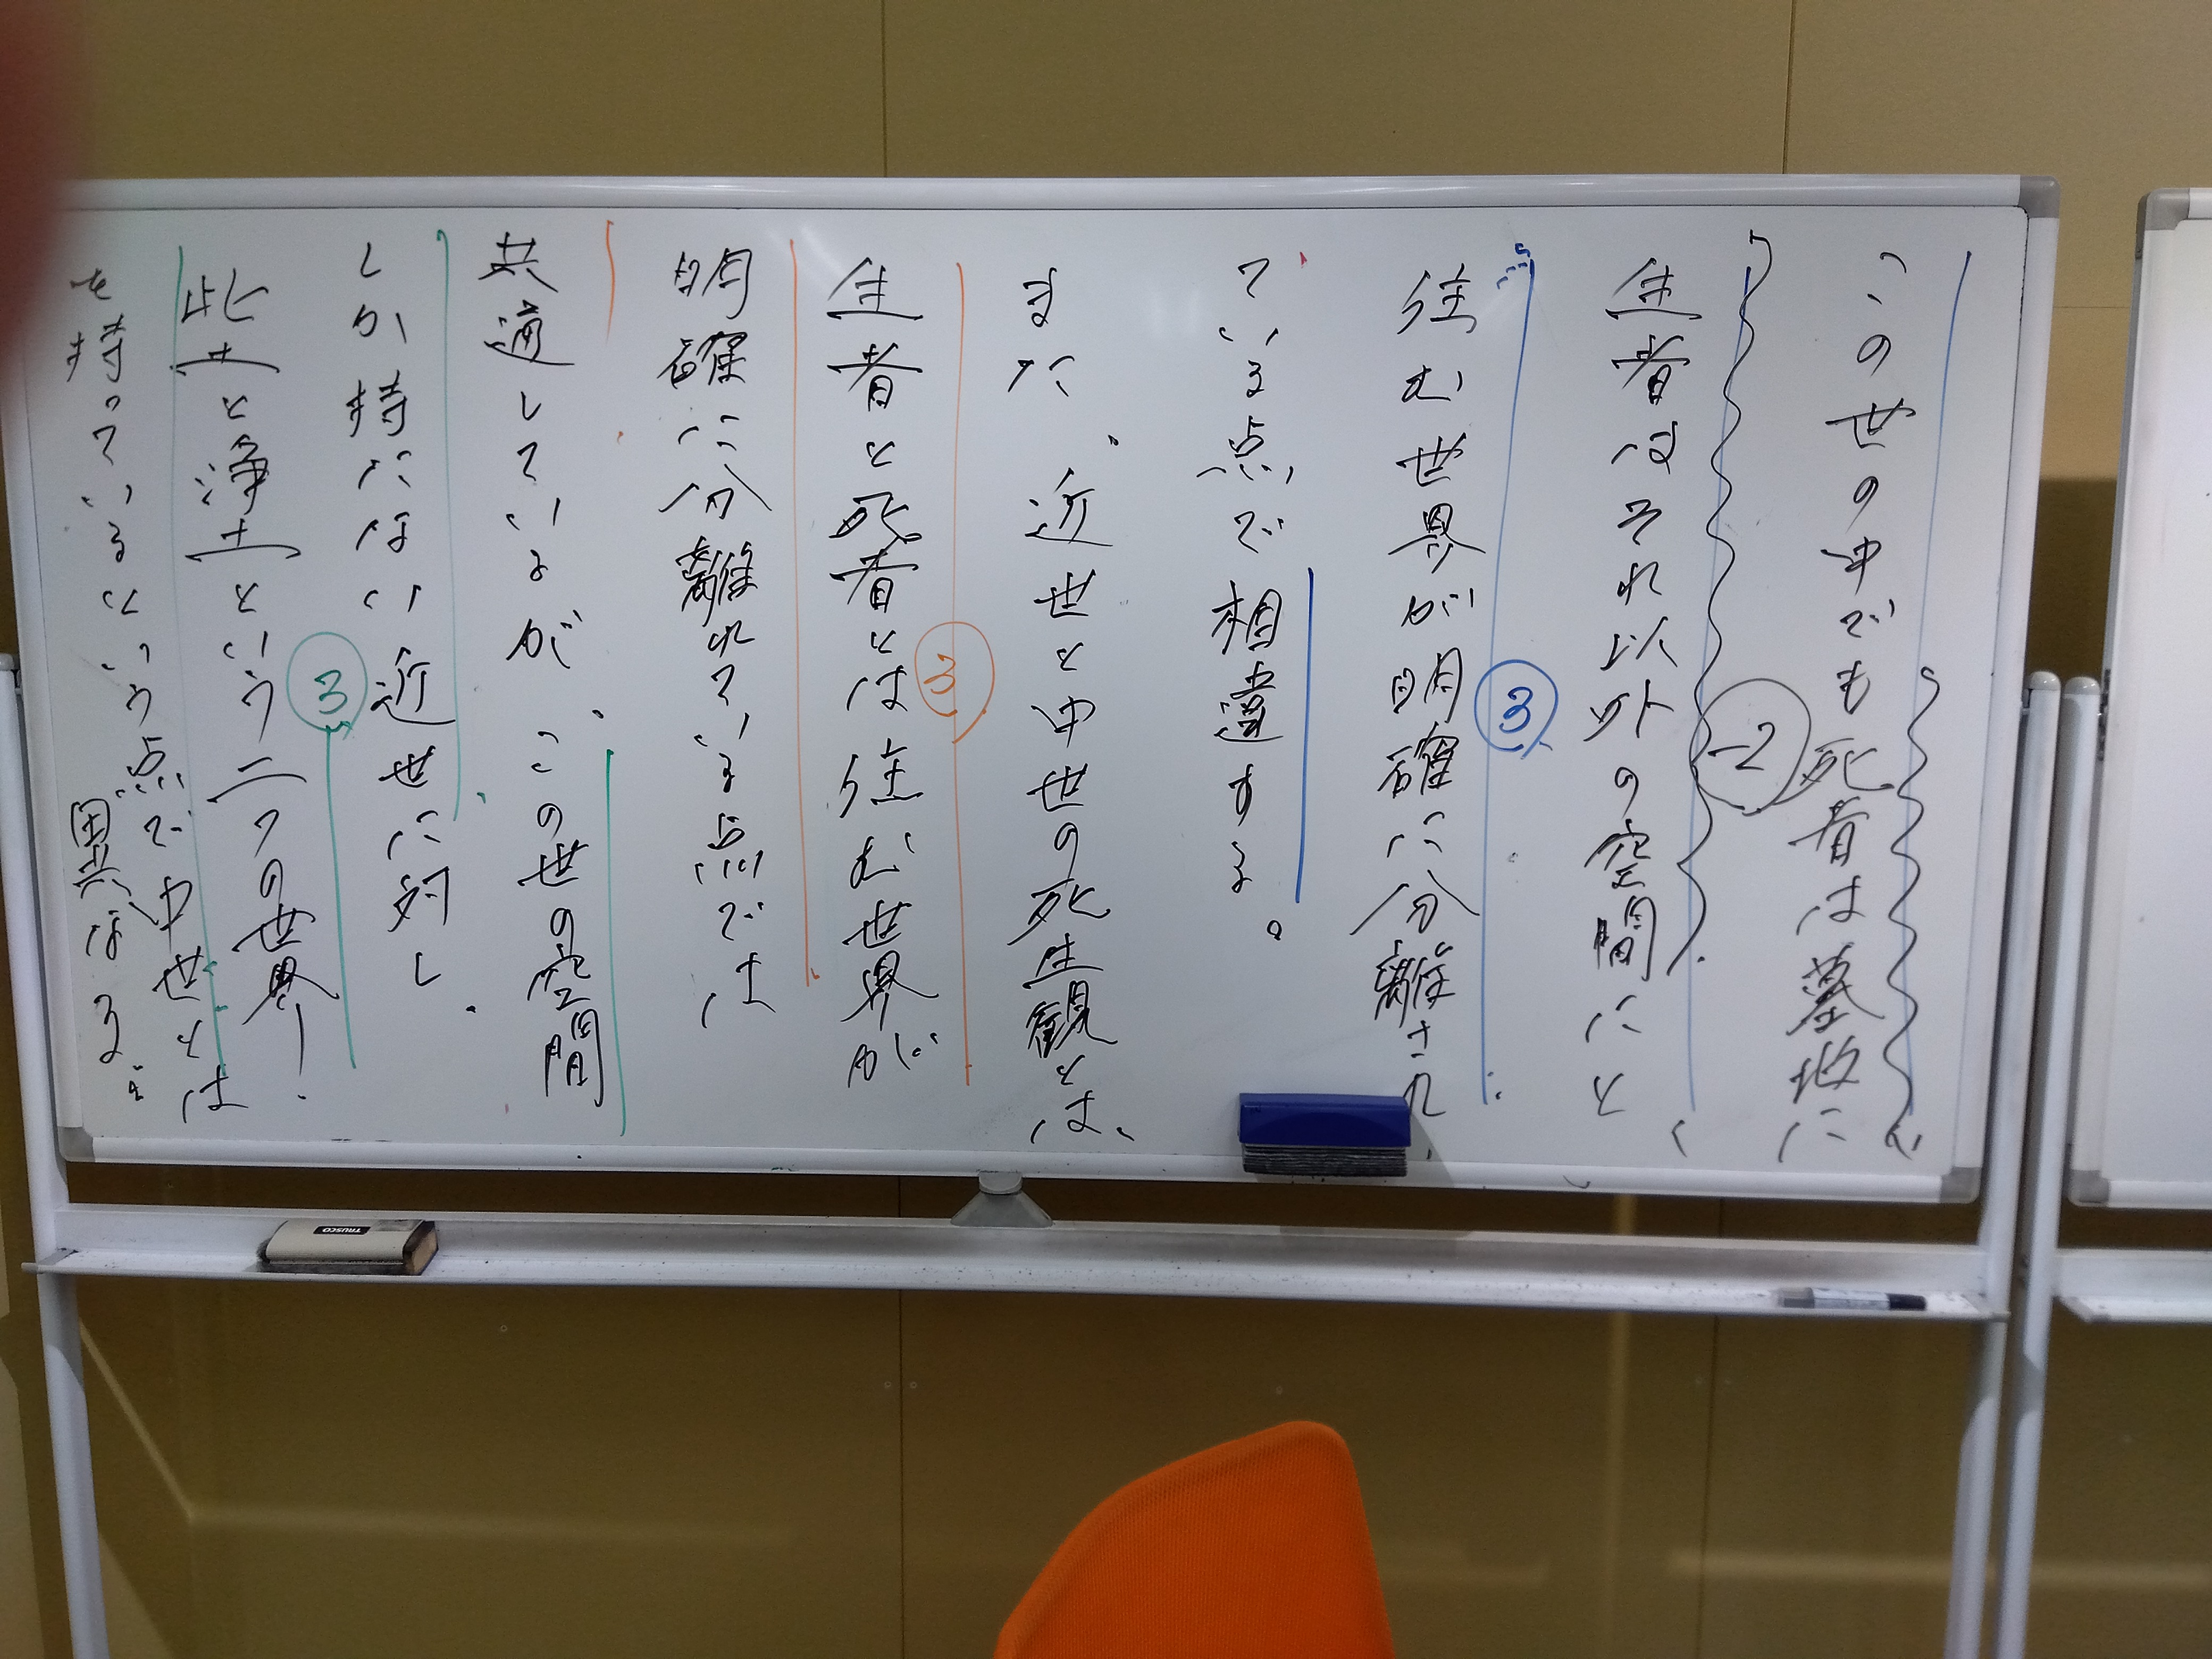 この世の中でも死者は墓地に
-2
生者はそれ以外の空間にと
3
住む世界が明確に分離され
ている点で相違する。
また、近世と中世の死生観とは、
3
生者と死者とは住む世界が
明確に分離れている点では
共通しているが、この世の空間
しか持たない近世に対し、
3
此土と浄土という二つの世界
を持っているという点で中世とは
異なる。
TRUSCO